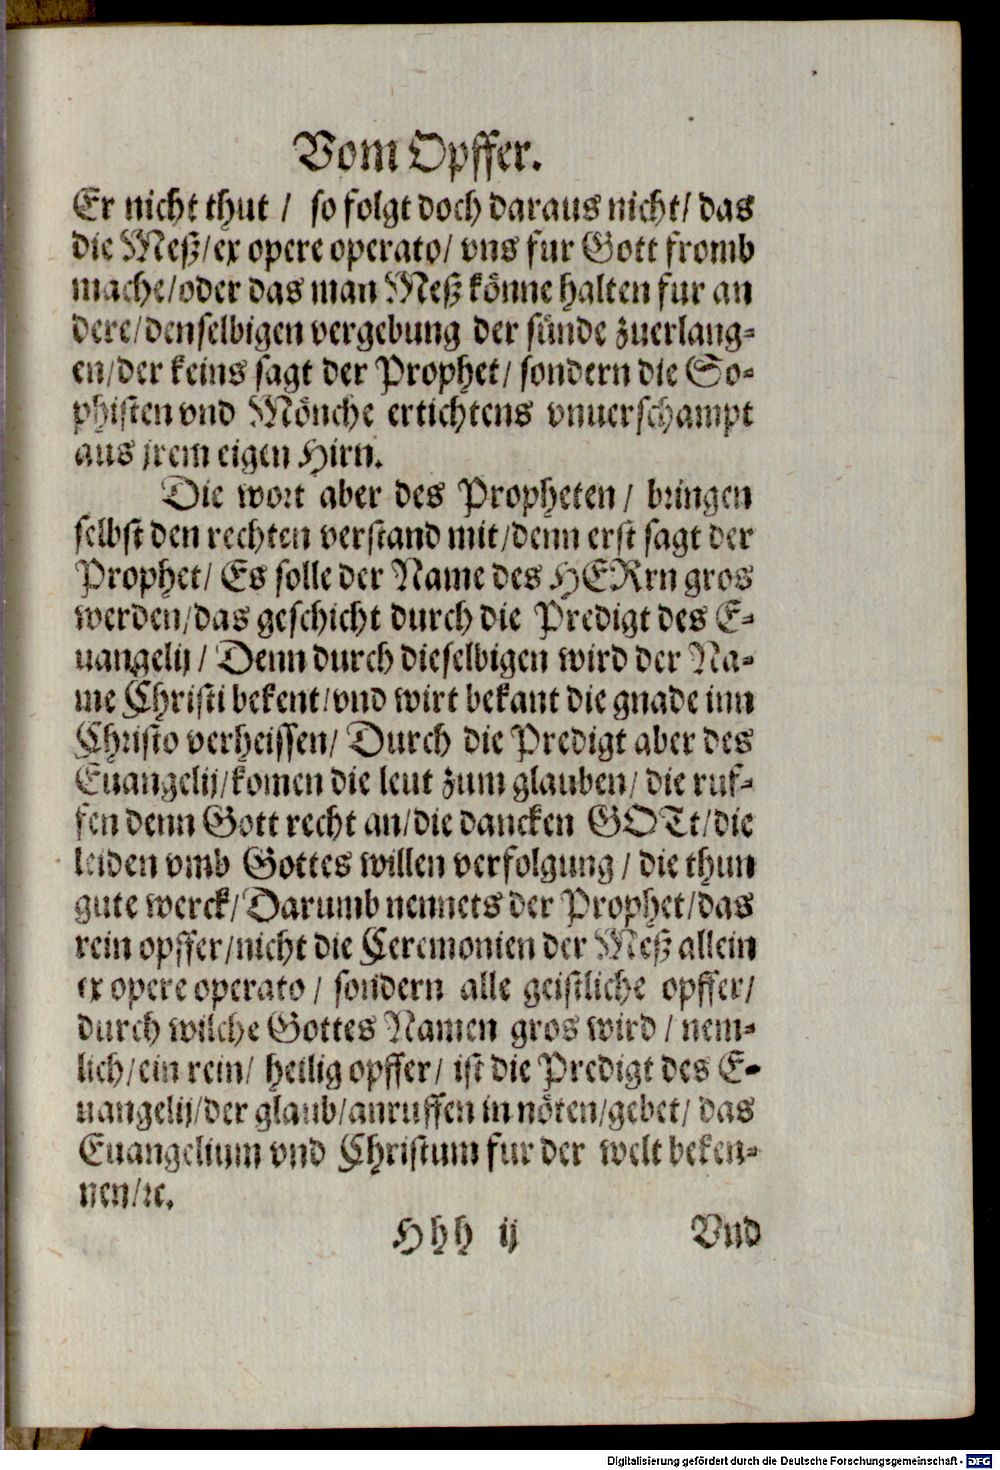 Vom Opffer.
Er nicht thut / so folgt doch daraus nicht/ das
die Meß/ex opere operato/ vns fur Gott fromb
mache/oder das man Meß könne halten fur an
dere/denselbigen vergebung der sünde zuerlang-
en/der keins sagt der Prophet/ sondern die So-
phisten vnd Mönche ertichtens vnuerschampt
aus jrem eigen Hirn.
Die wort aber des Propheten / bringen
selbst den rechten verstand mit/denn erst sagt der
Prophet/ Es solle der Name des HERrn gros
werden/das geschicht durch die Predigt des E-
uangelij / Denn durch dieselbigen wird der Na-
me Christi bekent/vnd wirt bekant die gnade inn
Christo verheissen/ Durch die Predigt aber des
Euangelij/komen die leut zum glauben/ die ruf-
fen denn Gott recht an/die dancken GOTt/die
leiden vmb Gottes willen verfolgung / die thun
gute werck/Darumb nennets der Prophet/das
rein opffer/nicht die Ceremonien der Meß allein
ex opere operato / sondern alle geistliche opffer/
durch wilche Gottes Namen gros wird / nem-
lich/ein rein/ heilig opffer/ ist die Predigt des E-
uangelij/der glaub/anruffen in nöten/gebet/ das
Euangelium vnd Christum fur der welt beken-
nen/ꝛc.
Hhh ij Vnd
Digitalisierung gefördert durch die Deutsche Forschungsgemeinschaft - DFG